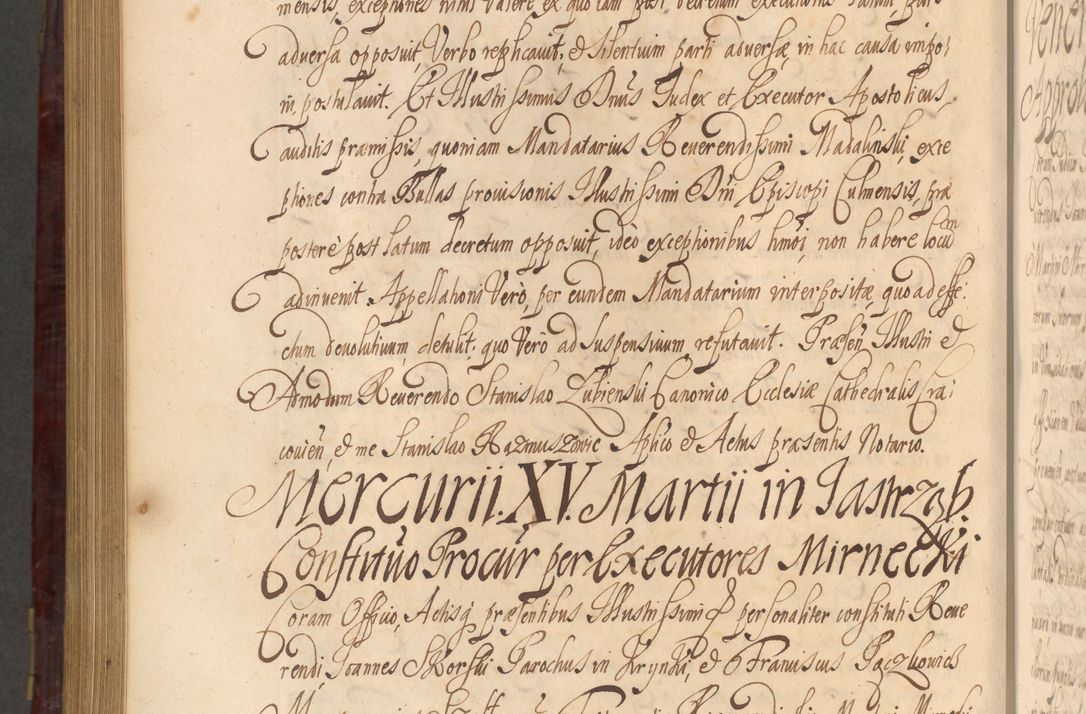 mensis, exceptiones nihil valere ex quo iam post decretum
adversa opposuit, Verbo replicavit, & silentium parti adversæ, in hac causa impo,
ni, postulavit. Et Illustrissimus Dnus Judex et Executor Apostolicus
auditis præmissis, quoniam Mandatarius Reverendissimi Madalinski, exce
ptiones contra Bullas provisionis Illustrissimi Dni Episcopi Culmensis, præ
postere post latum decretum opposuit, ideo exceptionibus hmoi, non habere locum
adinvenit. Appellationi Vero, per eundem Mandatarium interpositæ, quo ad effe,
ctum devolutivum, detulit, quo Vero ad suspensivum refutavit. Præsen Illustri &
Admodum Reverendo Stanislao Lubienski Canonico Ecclesiæ Cathedralis Cra,
covien, & me Stanislao Razmuszowic Aplico & Actus præsentis Notario.
Mercurii. XV. Martii in Jastrząb.
Constituo Procur per Executores Mirnecki
Coram Officio, Actisq præsentibus Illustrissimi personaliter constituti Reve
rendi, Joannes Skorski Parochus in Krynki, & Franciscus Pączkowicz